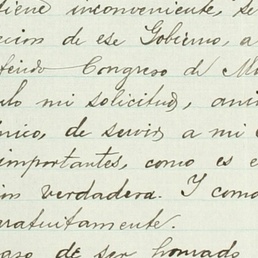 tiene inconveniente, se
ción de ese Gobierno, a
Congreso de
mi solicitud,
nico, de servir a mi
importantes, como es e
verdadera. Y como
ratuitamente.
de ser honrado